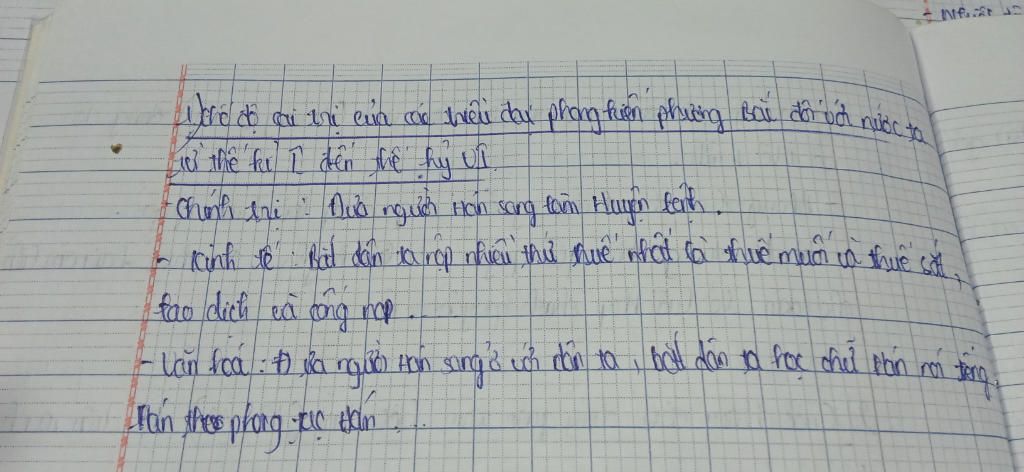 1) Chế độ cai trị của các triều đại phong kiến phương Bắc đối với nước ta
từ thế kỉ I đến thế kỷ VI
- Chính trị : Đưa người Hán sang làm Huyện lệnh.
- Kinh tế : Bắt dân ta nộp nhiều thứ thuế nhất là thuế muối và thuế sắt,
lao dịch và cống nạp.
- Văn hoá : Đưa người Hán sang ở với dân ta, bắt dân ta học chữ Hán nói tiếng
Hán theo phong tục Hán...